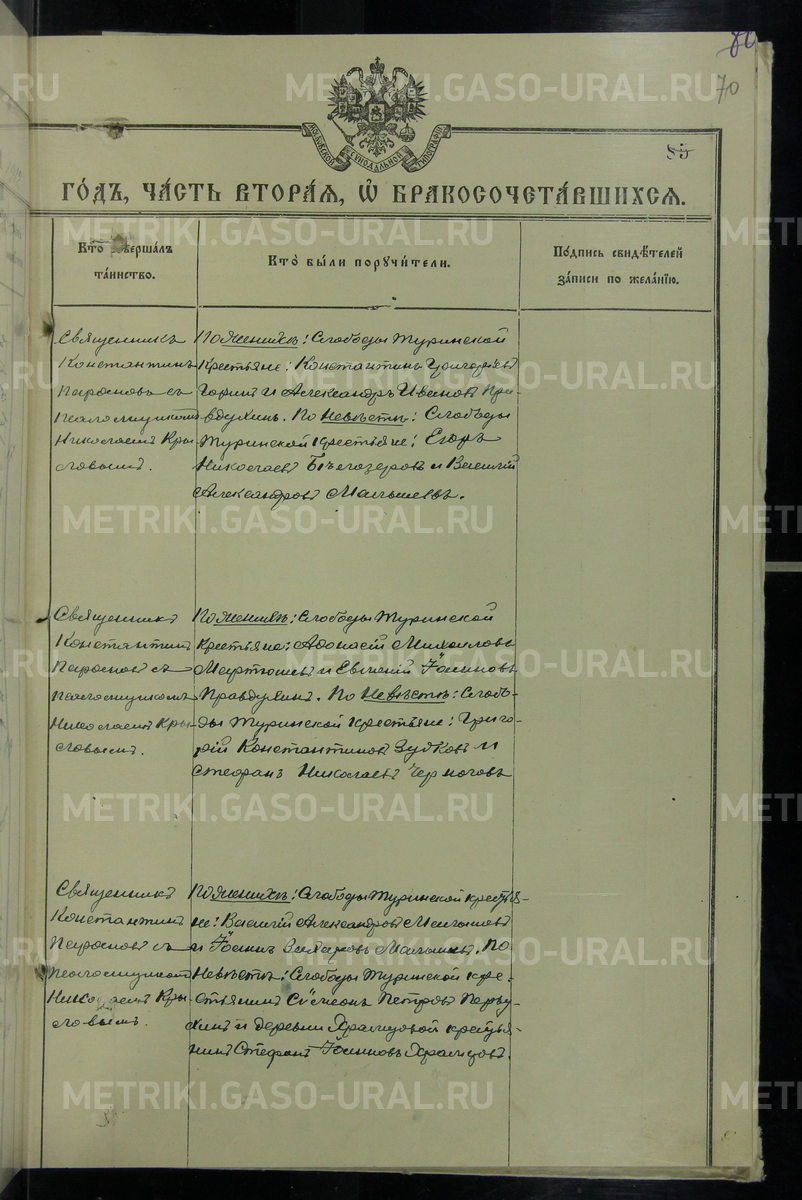 80
70
85
МОСКОВСКОЙ СѴНОДАЛЬНОЙ ТИПОГРАФІИ
ГО́ДЪ, ЧА́СТЬ ВТОРА́Я, Ѡ҆ БРАКОСОЧЕТА́ВШИХСЯ.
Кто̀ соверша́лъ
та́инство.
Кто̀ бы́ли порꙋчи́тели.
По́дпись свидѣ́телей
за́писи по жела́нїю.
Священникъ
Константинъ
съ
псаломщикомъ
Николаемъ Кры-
ловымъ.
По женихѣ: Слободы Туринской
крестьяне: Константинъ Григорьевъ
Горинъ и Александръ Ивановъ Пра-
вдухинъ. По невѣстѣ: Слободы
Туринской крестьяне: Егоръ
Николаевъ Бѣлозеровъ и Василій
Александровъ Малышевъ.
Священникъ
Константинъ
съ
псаломщикомъ
Николаемъ Кры-
ловымъ.
По женихѣ: Слободы Туринской
крестьяне: Афонасій Михаиловъ
и Евгеній Іоанновъ
Правдухинъ. По невѣстѣ: Слобо-
ды Туринской крестьяне: Григо-
рій Константиновъ Зудковъ и
Стефанъ Николаевъ Черноговъ
Священникъ
Константинъ
съ
псаломщикомъ
Николаемъ Кры-
ловымъ.
По женихѣ: Слободы Туринской крестья-
не: Василій Александровъ Малышевъ
и Іоаннъ Захаровъ Малышевъ. По
невѣстѣ: Слободы Туринской кре-
стьянинъ Сѵмеонъ Петровъ
и деревни Храмцовой крестья-
нинъ Стефанъ Іоанновъ Храмцовъ.
METRIKI.GASO-URAL.RU